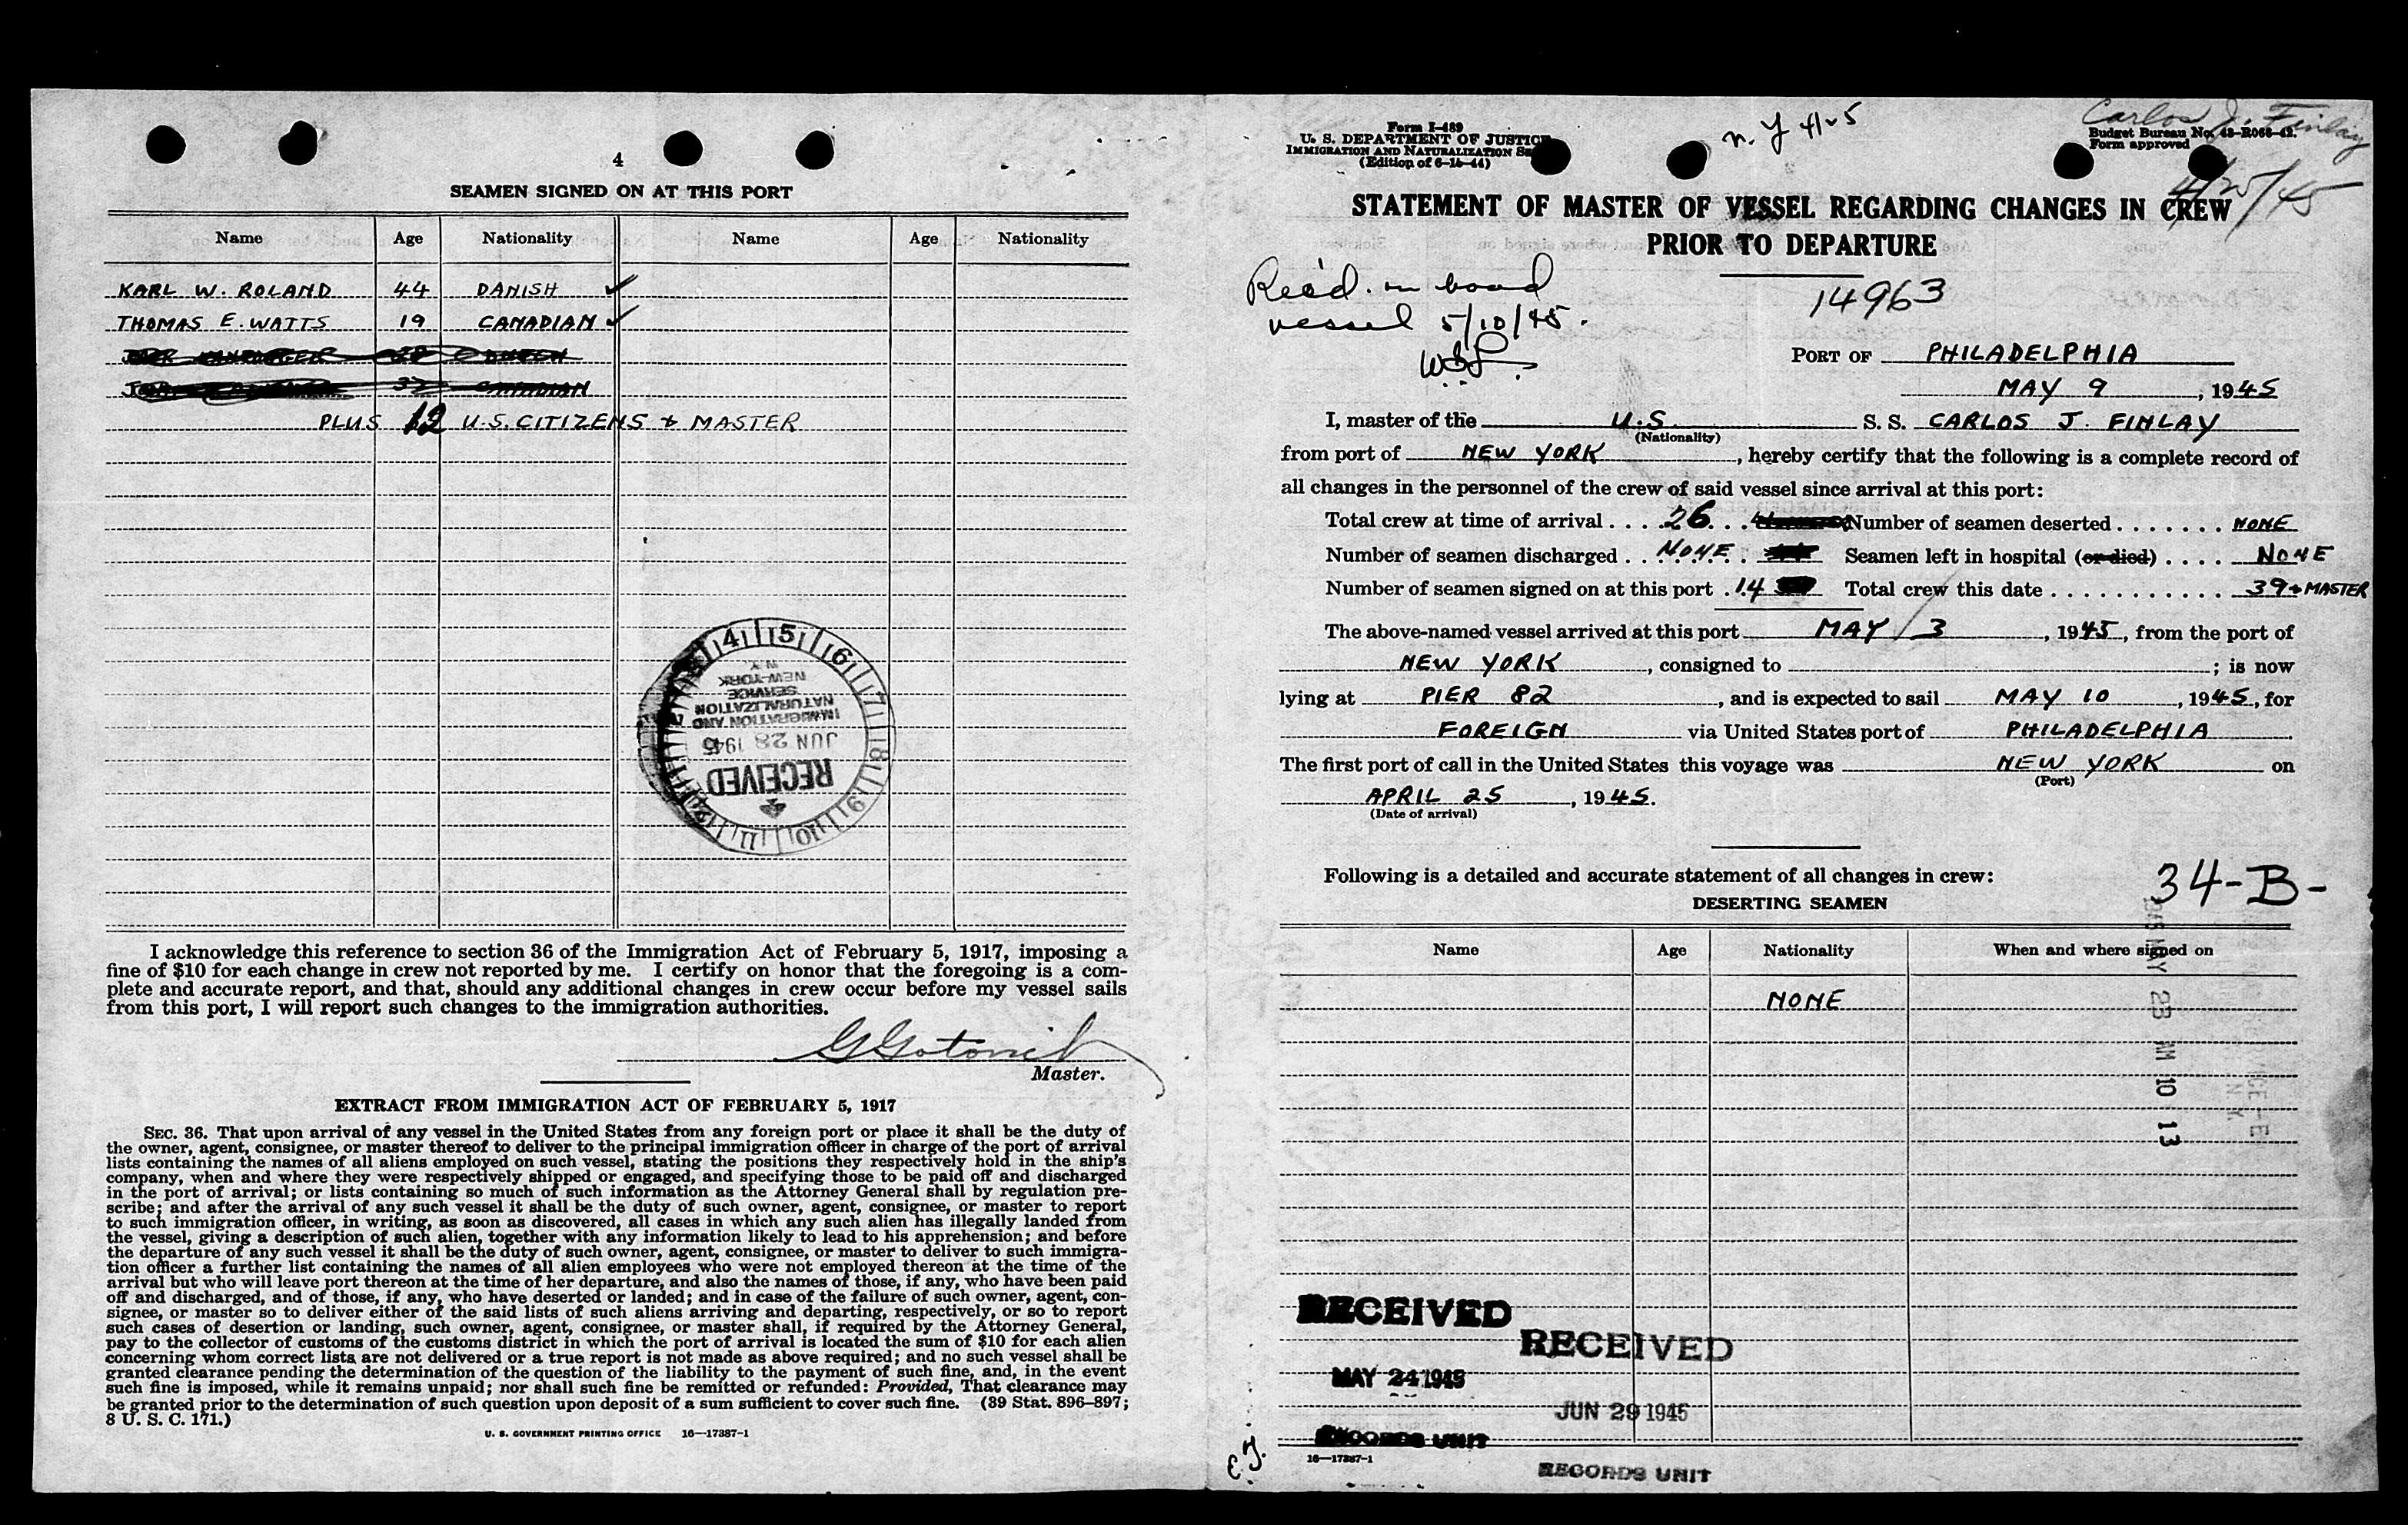 4
SEAMEN SIGNED ON AT THIS PORT
Name Age Nationality Name Age Nationality
KARL W. ROLAND 44 DANISH ✓
THOMAS E. WATTS 19 CANADIAN ✓
32 CANADIAN
PLUS 12 U.S. CITIZENS + MASTER
4 5 6 7 8 9 10 11 12
RECEIVED
JUN 28 1945
IMMIGRATION AND
NATURALIZATION
SERVICE
NEW-YORK
N.Y.
I acknowledge this reference to section 36 of the Immigration Act of February 5, 1917, imposing a
fine of $10 for each change in crew not reported by me. I certify on honor that the foregoing is a com-
plete and accurate report, and that, should any additional changes in crew occur before my vessel sails
from this port, I will report such changes to the immigration authorities.
Master.
EXTRACT FROM IMMIGRATION ACT OF FEBRUARY 5, 1917
SEC. 36. That upon arrival of any vessel in the United States from any foreign port or place it shall be the duty of
the owner, agent, consignee, or master thereof to deliver to the principal immigration officer in charge of the port of arrival
lists containing the names of all aliens employed on such vessel, stating the positions they respectively hold in the ship's
company, when and where they were respectively shipped or engaged, and specifying those to be paid off and discharged
in the port of arrival; or lists containing so much of such information as the Attorney General shall by regulation pre-
scribe; and after the arrival of any such vessel it shall be the duty of such owner, agent, consignee, or master to report
to such immigration officer, in writing, as soon as discovered, all cases in which any such alien has illegally landed from
the vessel, giving a description of such alien, together with any information likely to lead to his apprehension; and before
the departure of any such vessel it shall be the duty of such owner, agent, consignee, or master to deliver to such immigra-
tion officer a further list containing the names of all alien employees who were not employed thereon at the time of the
arrival but who will leave port thereon at the time of her departure, and also the names of those, if any, who have been paid
off and discharged, and of those, if any, who have deserted or landed; and in case of the failure of such owner, agent, con-
signee, or master so to deliver either of the said lists of such aliens arriving and departing, respectively, or so to report
such cases of desertion or landing, such owner, agent, consignee, or master shall, if required by the Attorney General,
pay to the collector of customs of the customs district in which the port of arrival is located the sum of $10 for each alien
concerning whom correct lists are not delivered or a true report is not made as above required; and no such vessel shall be
granted clearance pending the determination of the question of the liability to the payment of such fine, and, in the event
such fine is imposed, while it remains unpaid; nor shall such fine be remitted or refunded: Provided, That clearance may
be granted prior to the determination of such question upon deposit of a sum sufficient to cover such fine. (39 Stat. 896-897;
8 U. S. C. 171.)
U. S. GOVERNMENT PRINTING OFFICE 16—17387-1
Form I-489
U. S. DEPARTMENT OF JUSTICE
IMMIGRATION AND NATURALIZATION
(Edition of 6-15-44)
n. Y 4/25
Carlos J. Finlay
Budget Bureau No. 43-R066-42.
Form approved
4/25/45
STATEMENT OF MASTER OF VESSEL REGARDING CHANGES IN CREW
PRIOR TO DEPARTURE
Rec'd. on board
vessel 5/10/45.
14963
PORT OF PHILADELPHIA
MAY 9, 1945
I, master of the U.S. S. S. CARLOS J. FINLAY
(Nationality)
from port of NEW YORK, hereby certify that the following is a complete record of
all changes in the personnel of the crew of said vessel since arrival at this port:
Total crew at time of arrival .... 26 ... Number of seamen deserted ....... NONE
Number of seamen discharged .. NONE . Seamen left in hospital (or died) .... NONE
Number of seamen signed on at this port . 14 Total crew this date ........... 39 + MASTER
The above-named vessel arrived at this port MAY 3, 1945, from the port of
NEW YORK, consigned to ; is now
lying at PIER 82, and is expected to sail MAY 10, 1945, for
FOREIGN via United States port of PHILADELPHIA.
The first port of call in the United States this voyage was NEW YORK on
(Port)
APRIL 25, 1945.
(Date of arrival)
Following is a detailed and accurate statement of all changes in crew:
34-B-
DESERTING SEAMEN
Name Age Nationality When and where signed on
NONE
MAY 23 AM 10 13
RECEIVED
MAY 24 1945
RECORDS UNIT
RECEIVED
JUN 29 1945
RECORDS UNIT
E.J.
16—17387-1